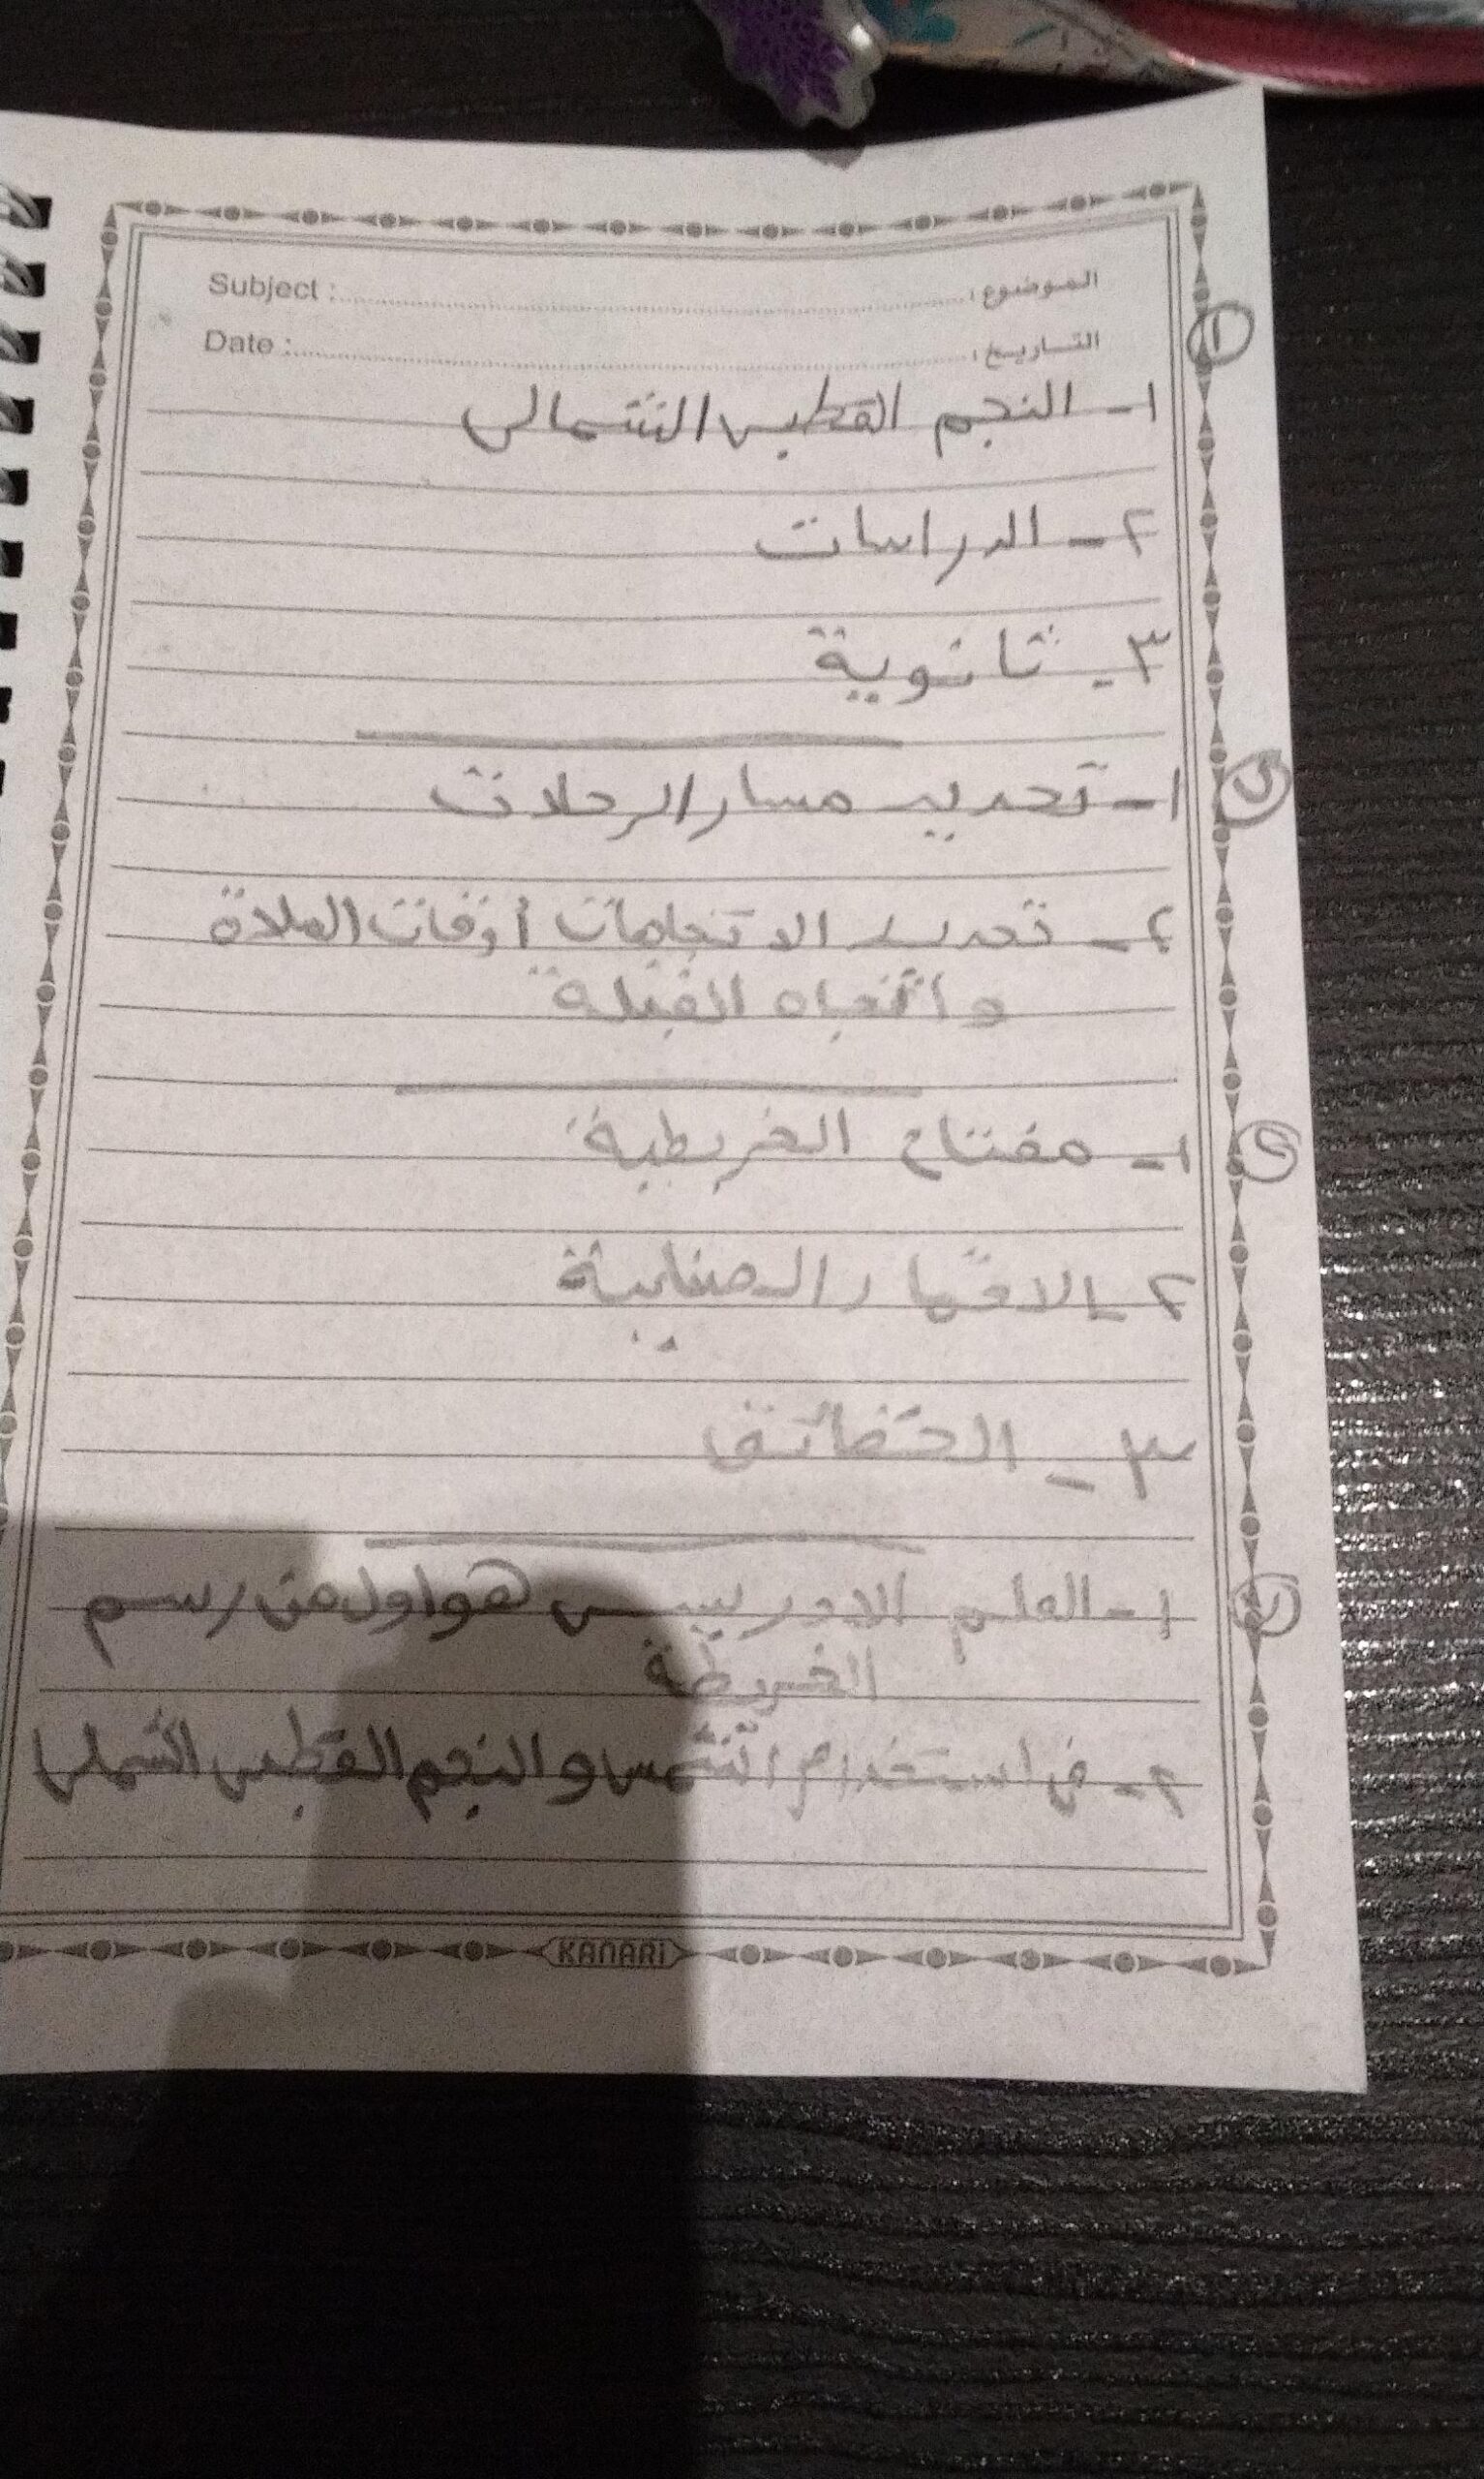 Subject : الموضوع :
Date : التاريخ :
١
١- النجم القطبى الشمالى
٢- الدراسات
٣- ثانوية
١- تحديد مسار الرحلات
٢- تحديد الاتجاهات أوقات الصلاة
و اتجاه القبلة
١- مفتاح الخريطة
٢- الاقمار الصناعية
٣- الحقائق
١- العلم الادريسى هو اول من رسم
الخريطة
٢- فى استخدام الشمس و النجم القطبى الشملى
KANARi